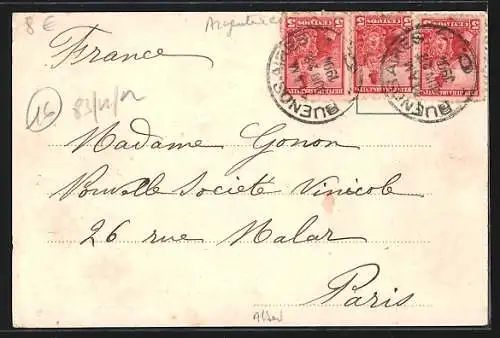 8 €
Argentinien
France
16
Madame Gonon
Nouvelle Societé Vinicole
26 rue Malar
Paris
BUENOS AIRES
BUENOS AIRES